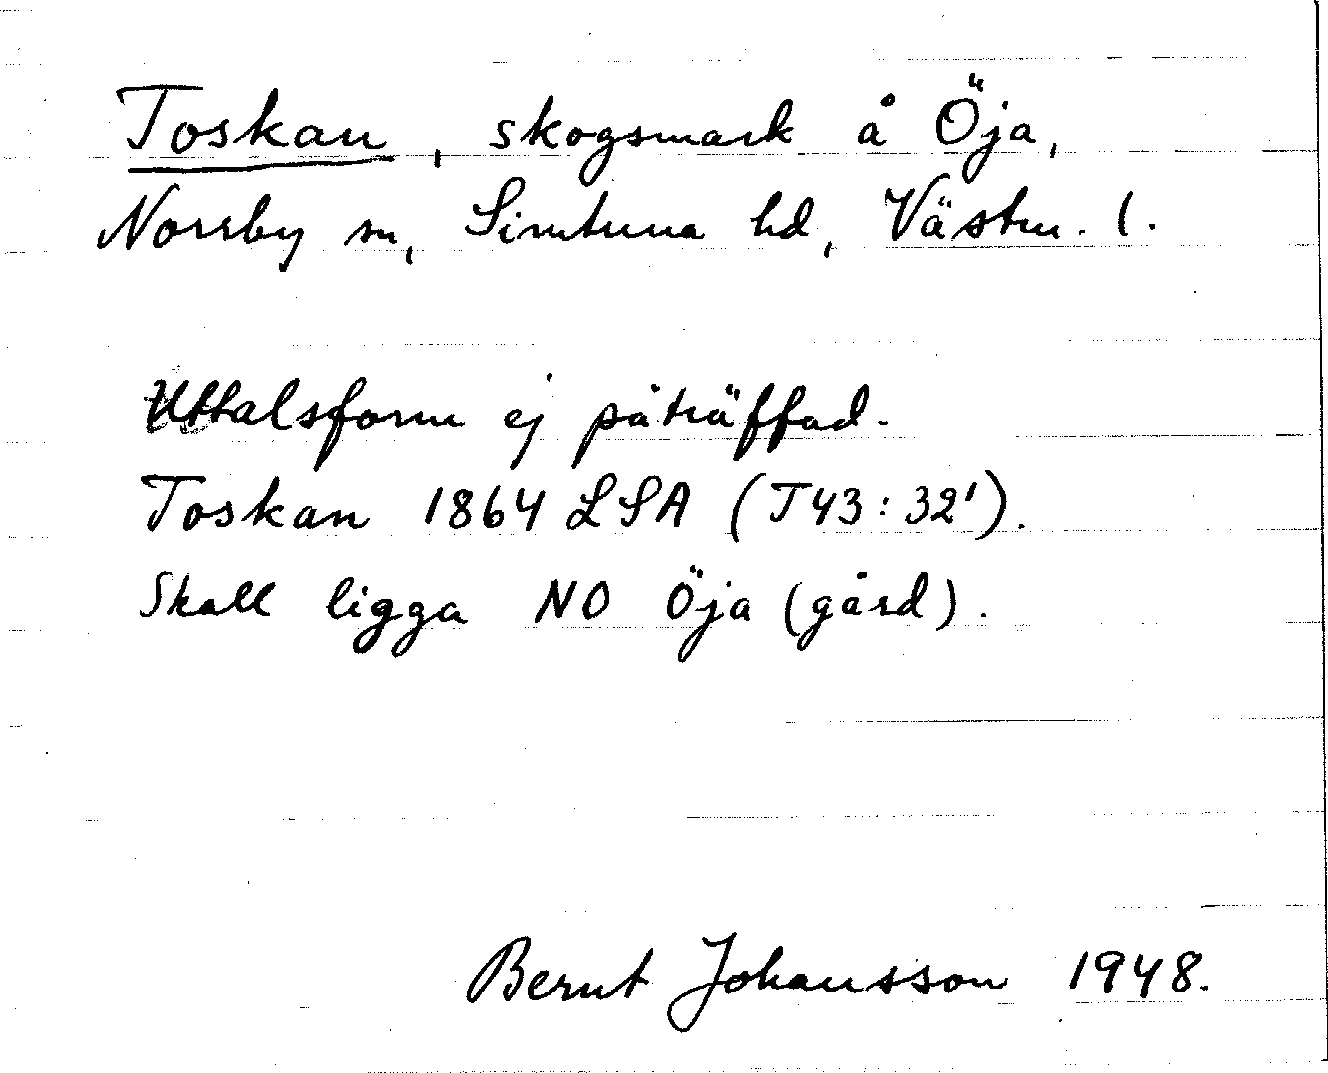 Toskan, skogsmark å Öja,
Norrby sn, Simtuna hd, Västm. l.
Uttalsform ej påträffad.
Toskan 1864 LSA (T43:32¹).
Skall ligga NO Öja (gård).
Bernt Johansson 1948.